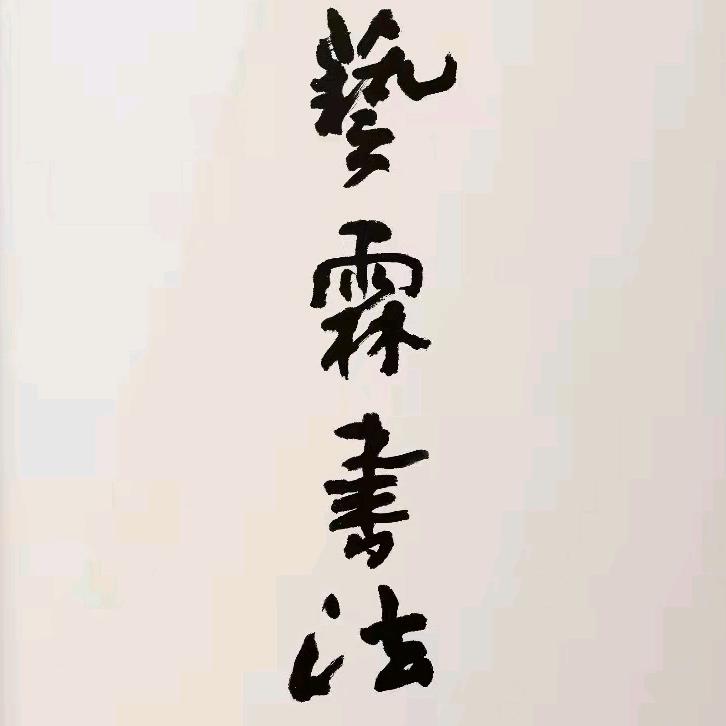 藝霖書法